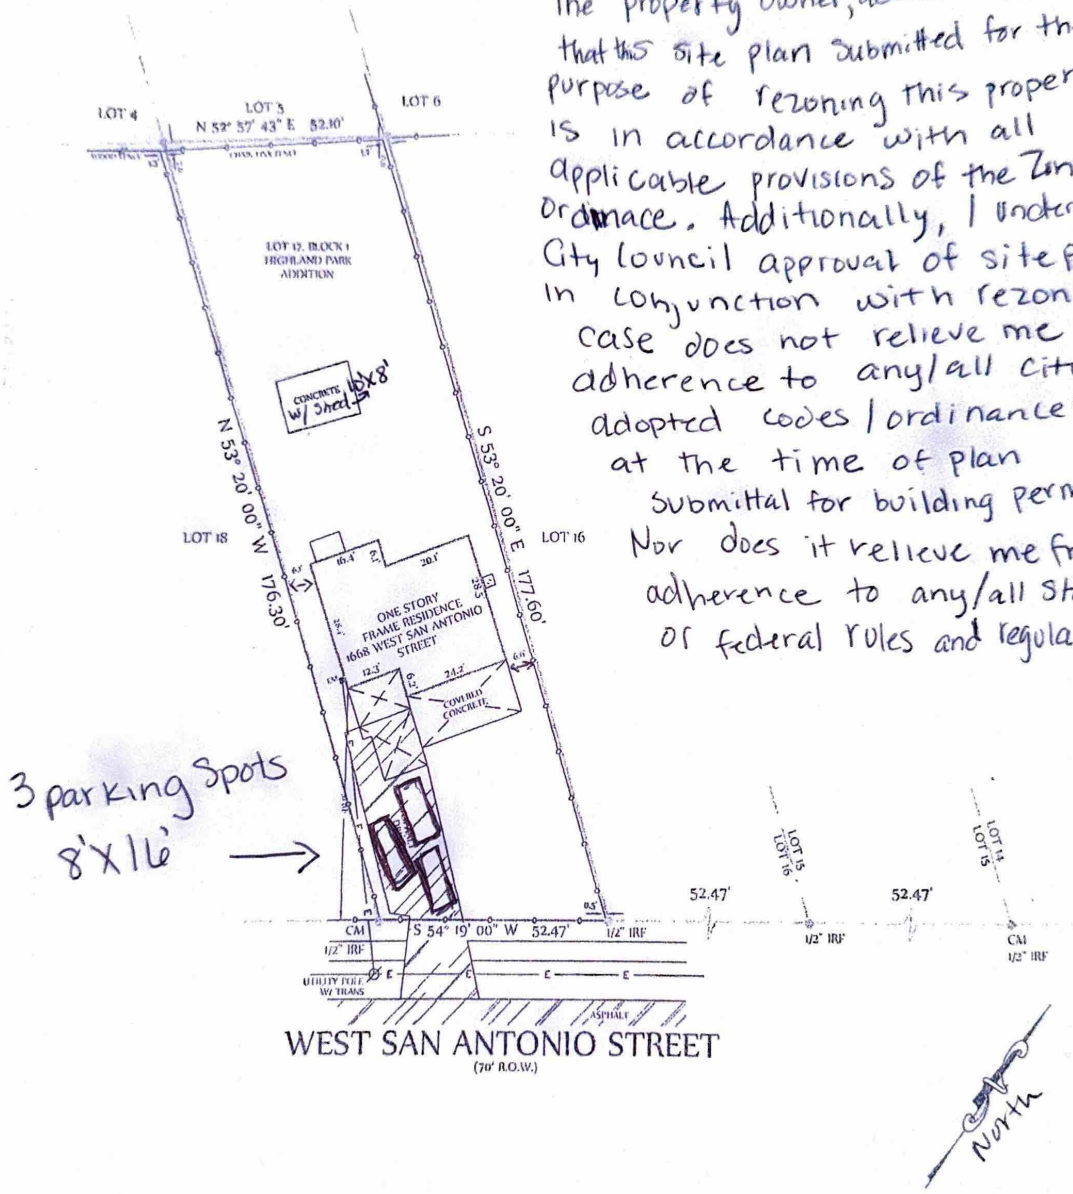 The property owner,
that this site plan submitted for th
purpose of rezoning this proper
is in accordance with all
applicable provisions of the Zon
Ordinace. Additionally, I under
City Council approval of site p
in conjunction with rezon
case does not relieve me
adherence to any/all cit
adopted codes/ordinance
at the time of plan
submittal for building perm
Nor does it relieve me fr
adherence to any/all st
or federal rules and regula
LOT 4
LOT 3
LOT 6
N 52° 57' 43" E 52.10'
LOT 17, BLOCK 1
HIGHLAND PARK
ADDITION
CONCRETE 10'X8'
w/ shed
N 53° 20' 00" W 176.30'
S 53° 20' 00" E 177.60'
LOT 18
LOT 16
16.4'
20.1'
28.5'
ONE STORY
FRAME RESIDENCE
1668 WEST SAN ANTONIO
STREET
12.3'
6.2'
24.2'
6.6'
COVERED
CONCRETE
3 parking spots
8'X16'
0.5'
CM
1/2" IRF
S 54° 19' 00" W 52.47'
1/2" IRF
52.47'
LOT 15
LOT 16
1/2" IRF
52.47'
LOT 14
LOT 15
CM
1/2" IRF
UTILITY POLE
W/ TRANS
E
E
E
E
ASPHALT
WEST SAN ANTONIO STREET
(70' R.O.W.)
North